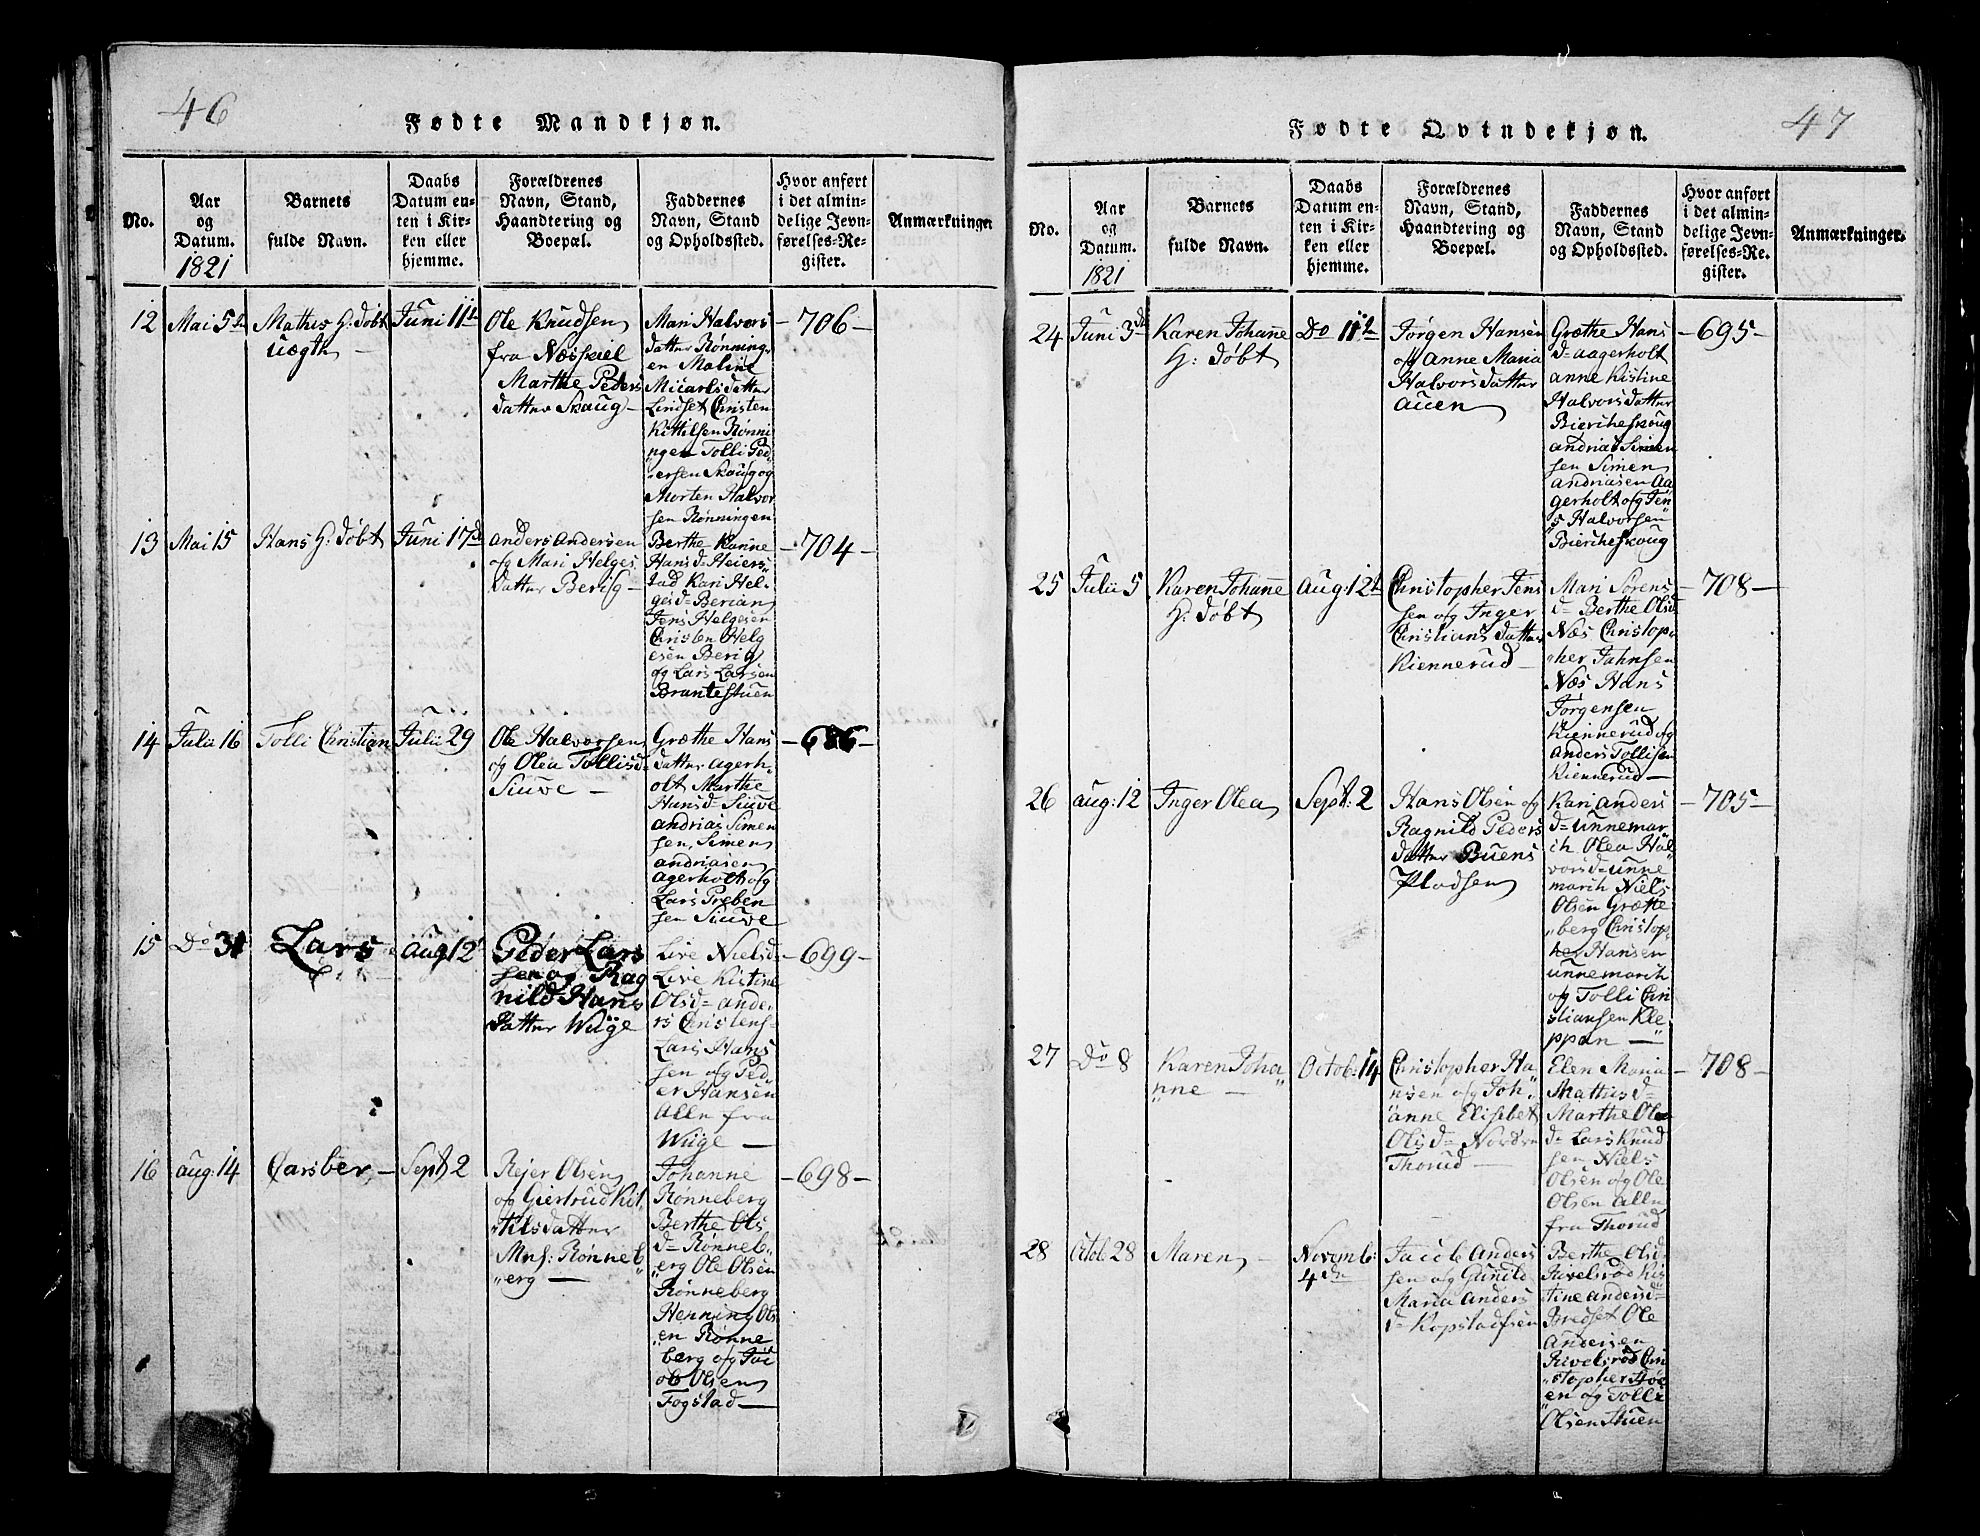 46
Fødte Mandkjøn.
No.
Aar
og
Datum.
1821
Barnets
fulde Navn.
Daabs
Datum en-
ten i Kir-
ken eller
hjemme.
Forældrenes
Navn, Stand,
Haandtering og
Boepæl.
Faddernes
Navn, Stand
og Opholdssted.
Hvor anført
i det almin-
delige Jevn-
førelses-Re-
gister.
Anmærkninger
12
Mai 5te
Mathis H: døbt
uægth —
Juni 11te
Ole Knudsen
fra Næsseiel
Marthe Peders
datter Skaug —
Mari Halvors
datter Rønning-
en Maline
Micarlsdatter
Lindset Christen
Kittilsen Rønni
ngen Tolli Ped
ersen Skaug og
Morten Halvor
sen Rønningen
— 706 —
13
Mai 15
Hans H: døbt
Juni 17de
Anders Andersen
og Mari Helges
datter Berig —
Berthe Karine
Hansd= Heiers
tad Kari Hel-
gesd= Berian
Jens Helgesen
Christen Helg
esen Berig
og Lars Larsen
Brantestuen
— 704 —
14
Julii 16
Tolli Christian
Julii 29
Ole Halvorsen
og Olea Tollisd=
Siuve —
Græthe Hans
datter Agerh-
olt Marthe
Hansd= Siuve
Andrias Simen
sen, Simen
Andriasen
Agerholt og
Lars Preben
sen Siuve
— 686 —
15
Do 31
Lars
Aug 12
Peder Lars
sen og Rag
nild Hans
datter Wüge
Live Nielsd=
Live Kistine
Olsd= Ande-
rs Christens-
Lars Hans
sen og Ped
er Hansen
Alle fra
Wüge —
— 699 —
16
Aug: 14
Carsber —
Sept 2
Rejer Olsen
og Giertrud Kit
tilsdatter
Mns: Rønneb
erg —
Johanne
Rønneberg
Berthe Ols
d= Rønneb
erg Ole Olsen
Rønneberg
Henning Ols
en Rønne
berg og Jac
ob Olsen
Fogstad —
— 698 —
47
Fødte Qvindekjøn.
No.
Aar
og
Datum.
1821
Barnets
fulde Navn.
Daabs
Datum en-
ten i Kir-
ken eller
hjemme.
Forældrenes
Navn, Stand,
Haandtering og
Boepæl.
Faddernes
Navn, Stand
og Opholdssted.
Hvor anført
i det almin-
delige Jevn-
førelses-Re-
gister.
Anmærkninger.
24
Juni 3de
Karen Johane
H: døbt
Do 11te
Jørgen Hansen
og Anne Maria
Halvorsdatter
Auen
Græthe Hans
d= Aagerholt
Anne Kistine
Halvorsdatter
Biercheskoug
Andrias Simen
sen Simen
Andriasen Aa
gerholt og Jen
s Halvorsen
Biercheskoug
— 695 —
25
Julii 5
Karen Johane
H: døbt
Aug: 12te
Christopher Jens
sen og Inger
Christiansdatter
Kiennerud —
Mari Sørens
d= Berthe Olsd
Næs Christop
her Jahnsen
Næs Hans
Jørgensen
Kiennerud og
Anders Tollisen
Kiennerud —
— 708 —
26
Aug: 12
Inger Olea
Sept: 2
Hans Olsen og
Ragnild Peders
datter Buens
Pladsen
Kari Anders
d= Unnemar
ch Olea Hal
vorsd= Unne
march Niels
Olsen Grætte
berg Christop
her Hansen
Unnemarch
og Tolli Chri
stiansen Kle
ppan —
— 705 —
27
Do 8
Karen Joha
nne —
Octob: 14
Christopher Ha
nsen og Joh
anne Elisebet
Olsd= Nordre
Thorud —
Elen Maria
Mathisd=
Marthe Ole
d= Lars Knud
sen Niels
Olsen og Ole
Olsen Alle
fra Thorud
— 708 —
28
Octob 28
Maren —
Novemb:
4de
Jacob Anders
sen og Gunild
Maria Anders
d= Kopstadsen
Berthe Olsd
Rivelsrød Kis
tine Andersd=
Bredset Ole
Andersen
Rivelsrød Chri
stopher Høe
en og Tolle
Olsen Stuen